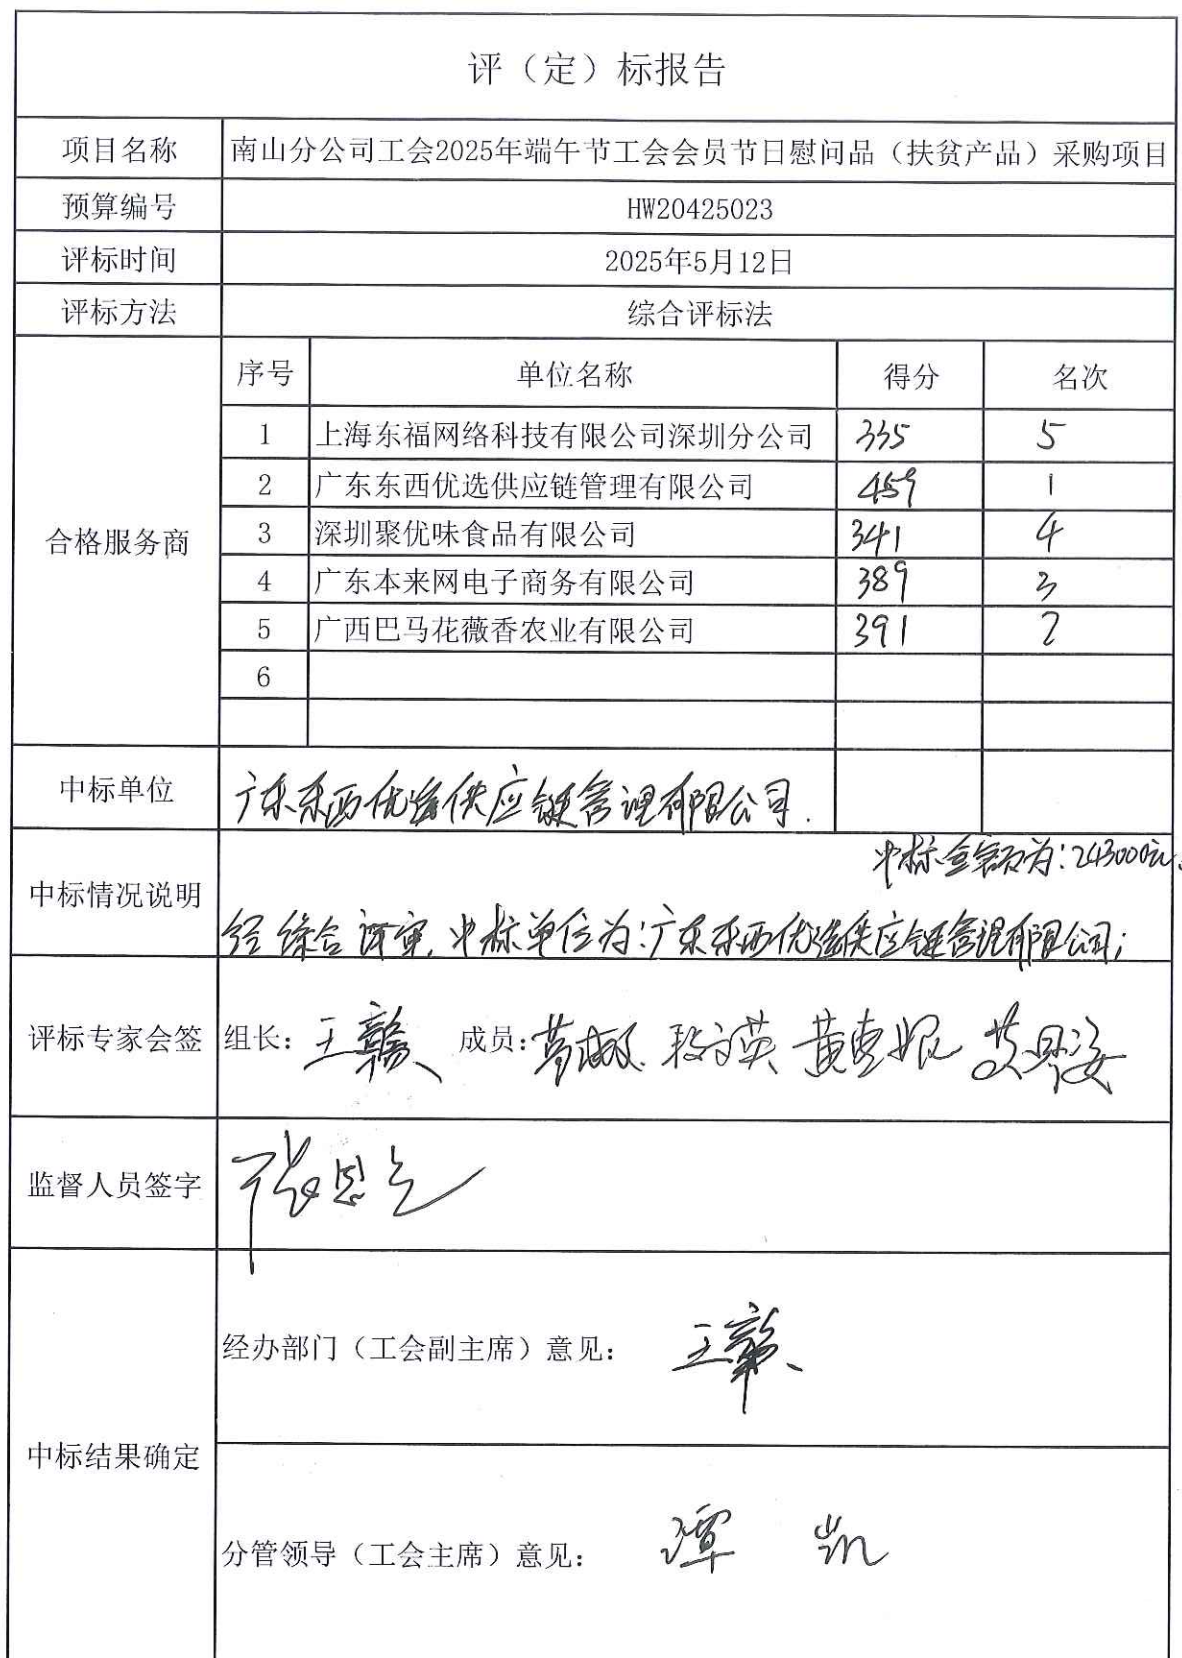 评（定）标报告
项目名称 南山分公司工会2025年端午节工会会员节日慰问品（扶贫产品）采购项目
预算编号 HW20425023
评标时间 2025年5月12日
评标方法 综合评标法
合格服务商
序号 单位名称 得分 名次
1 上海东福网络科技有限公司深圳分公司 335 5
2 广东东西优选供应链管理有限公司 459 1
3 深圳聚优味食品有限公司 341 4
4 广东本来网电子商务有限公司 389 3
5 广西巴马花薇香农业有限公司 391 2
6
中标单位 广东东西优选供应链管理有限公司.
中标情况说明
中标金额为:243000元。
经综合评审,中标单位为:广东东西优选供应链管理有限公司;
评标专家会签 组长: 王赣 成员:
监督人员签字
中标结果确定
经办部门（工会副主席）意见: 王赣
分管领导（工会主席）意见: 谭凯